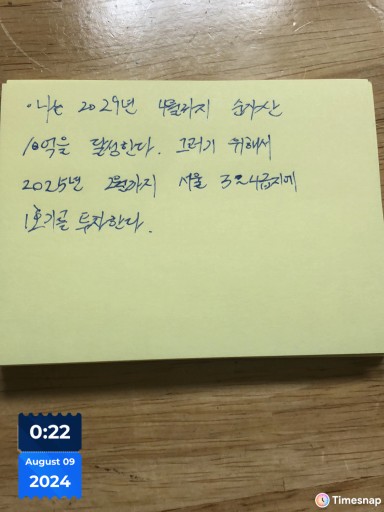 나는 2029년 4월까지 순자산
10억을 달성한다. 그러기 위해서
2025년 2월까지 서울 3or4급지에
1호기를 투자한다.
0:22
August 09
2024
Timesnap